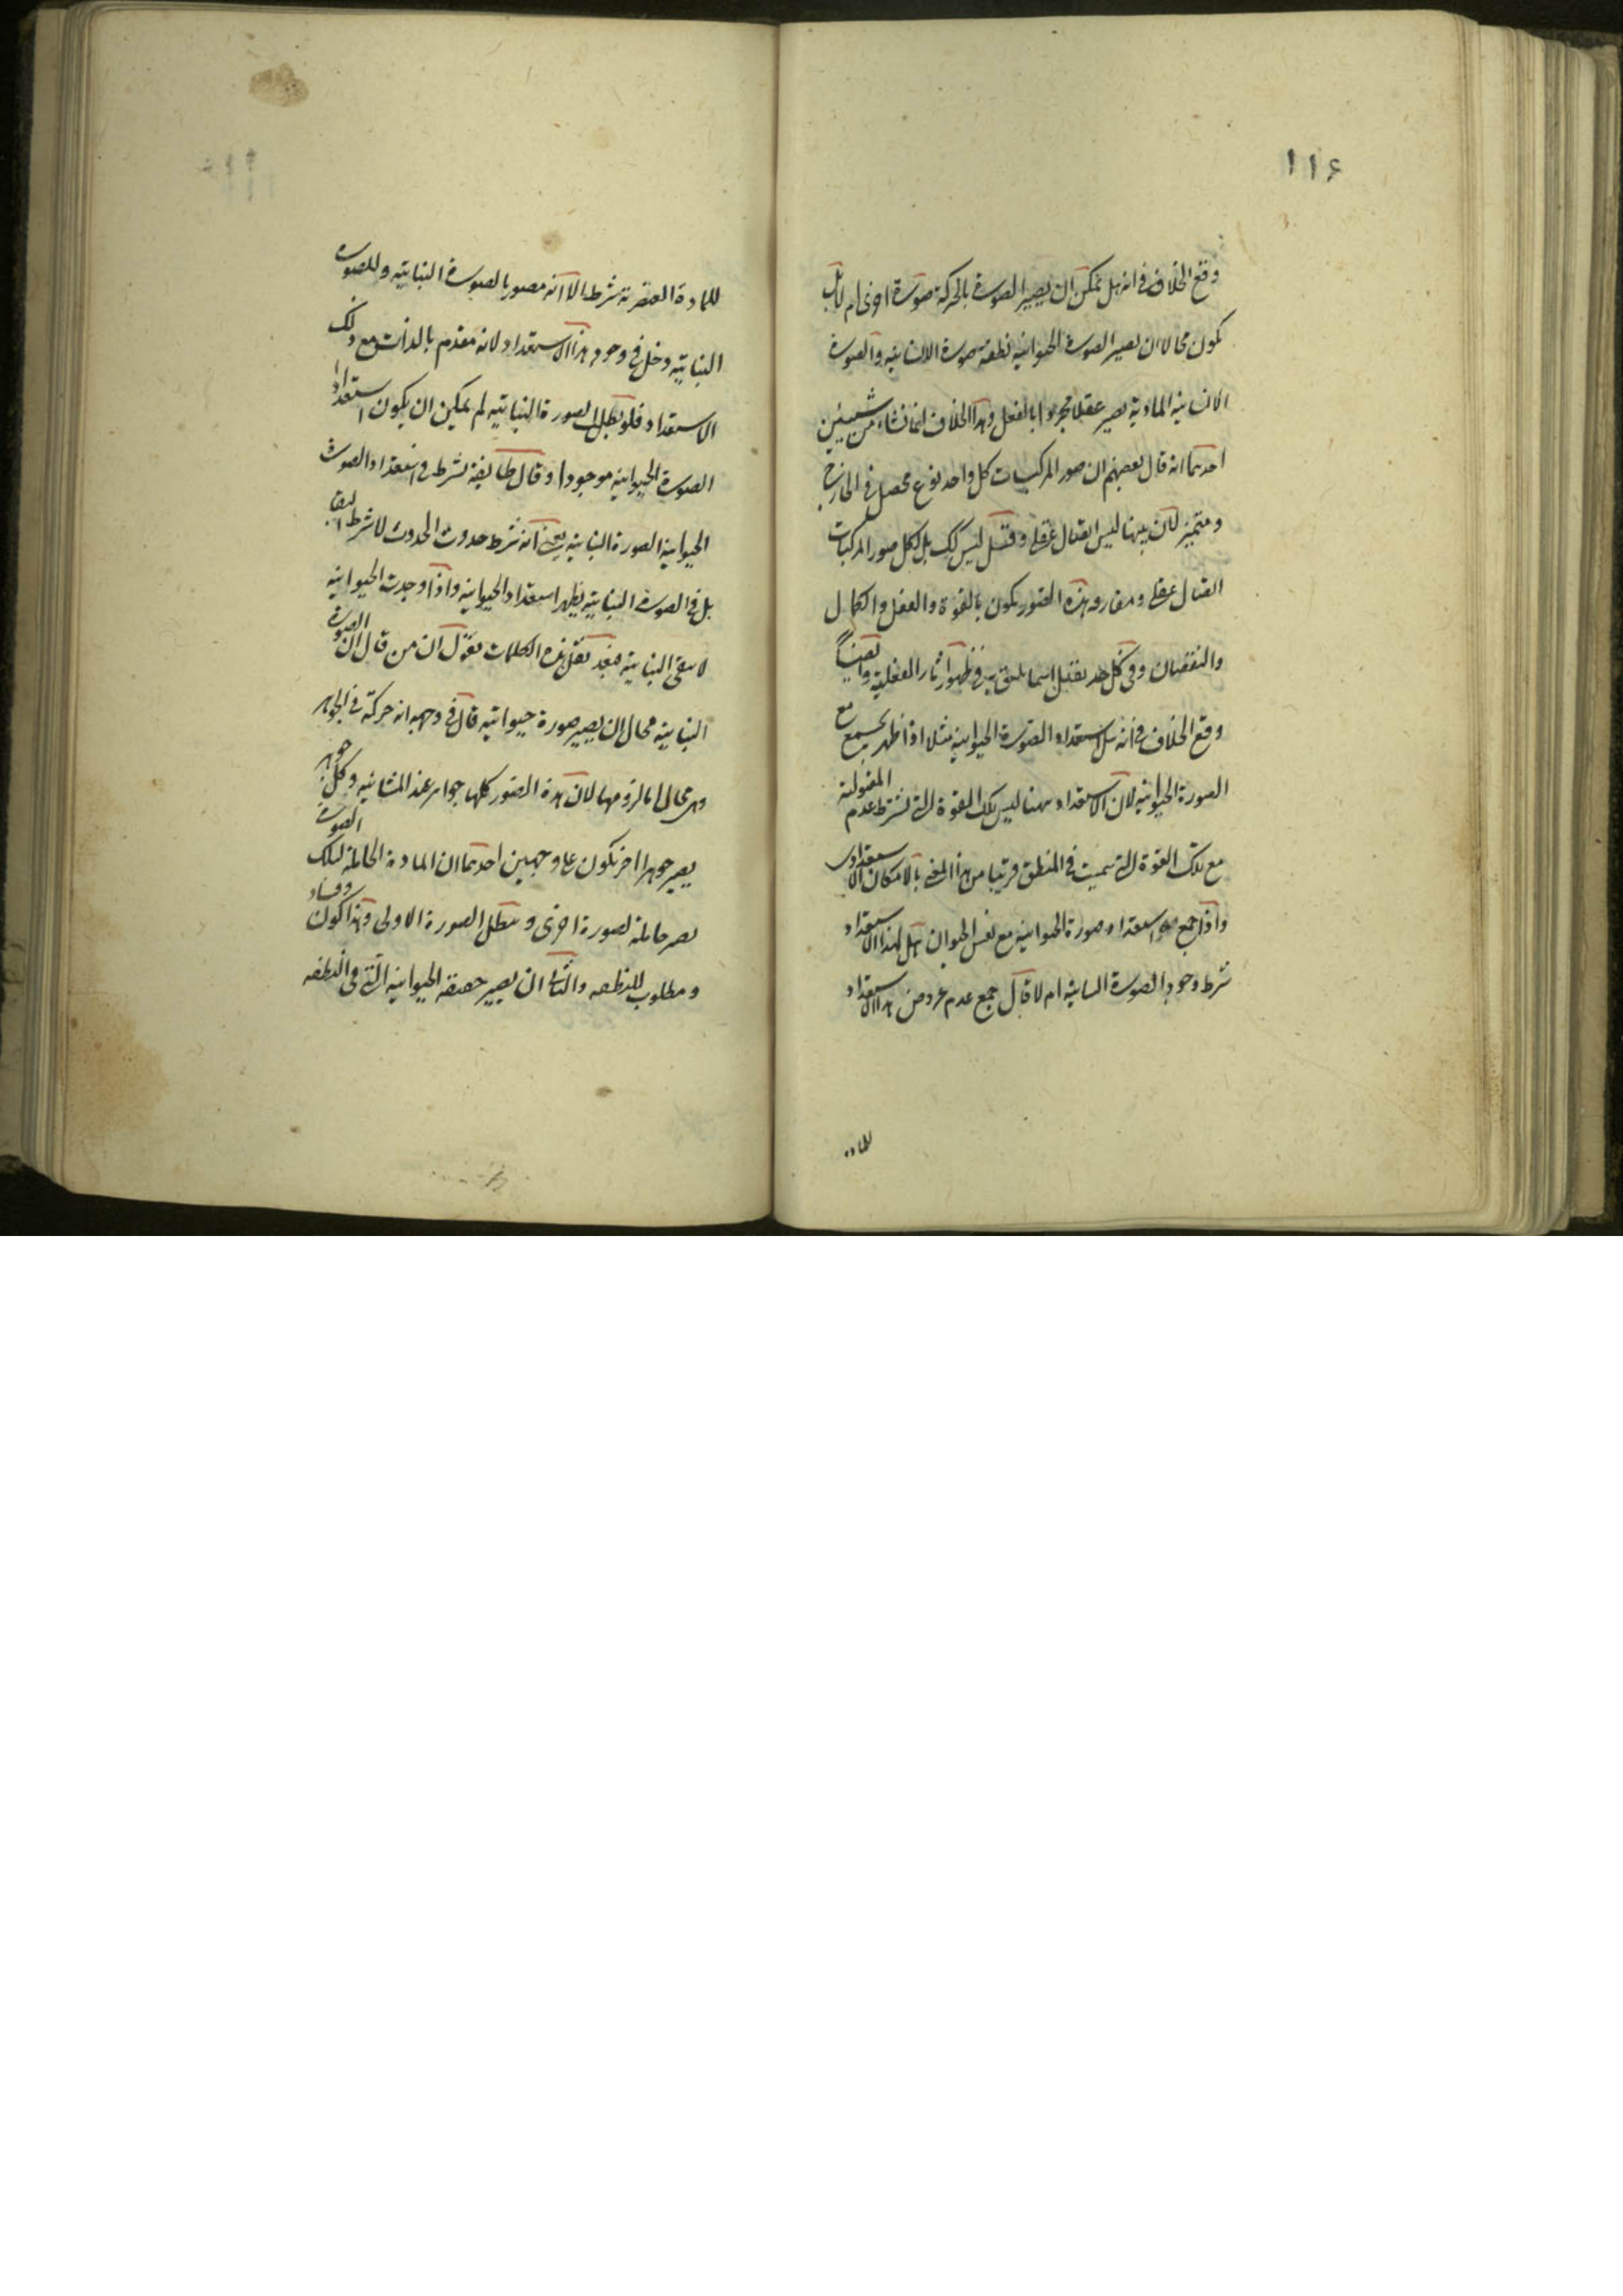 ١١٦
وقع الخلاف فى انه هل يمكن ان يصير الصورة بالحركة صورة اخرى ام لا بل
يكون محالا ان يصير الصورة الحيوانية نطفة صورة الانسانية والصورة
الانسانية المادية يصير عقلا مجردا بالفعل وهذا الخلاف انما نشاء من شيئين
احدهما انه قال بعضهم ان صور المركبات كل واحد نوع محصل فى الخارج
ومتميز لان بينها ليس اتصال عقلى وقيل ليس كك بل لكل صور المركبات
اتصال عقلى ومقارد هذه الصور يكون بالقوة والفعل والكمال
والنقصان وفى كل حد يقبل اسما يليق به فى ظهور آثار الفعلية وايضا
وقع الخلاف فى انه هل استعداد الصورة الحيوانية مثلا اذا ظهر يجتمع مع
الصورة الحيوانية لان الاستعداد ههنا ليس تلك القوة التى بشرط عدم المقبولية
مع تلك القوة التى سميت فى المنطق قريبا من هذا المعنى بالامكان الاستعدادى
واذا جمع استعداد صورة الحيوانية مع نفس الحيوان هل لهذا الاستعداد
شرط وجود الصورة النباتية ام لا قال جمع عدم عروض هذا الاستعداد
للمادة
للمادة العنصرية شرط الا انه مصور بالصورة النباتية وللصورة
النباتية دخل فى وجود هذا الاستعداد لانه مقدم بالذات مع ذلك
الاستعداد فلو بطل الصورة النباتية لم يمكن ان يكون استعداد
الصورة الحيوانية موجودا وقال طايفة شرط فى استعداد الصورة
الحيوانية الصورة النباتية يعنى انه شرط حدوث الحدوث لا شرط البقا
بل فى الصورة النباتية يظهر استعداد الحيوانية واذا وجدت الحيوانية
لا يبقى النباتية فبعد نقل هذه الكلمات نقول ان من قال ان الصورة
النباتية محال ان يصير صورة حيوانية قال فى وجهه انه حركة فى الجواهر
وهى محال اما لزومها لان هذه الصور كلها جواهر عند المشائية وكل جوهر
يصير جوهرا اخر يكون على وجهين احدهما ان المادة الحاملة لتلك الصورة
يصير حاملة لصورة اخرى ويبطل الصورة الاولى وهذا كون وفساد
ومطلوب للنطفه والثانى ان يصير حقيقة الحيوانية التى فى النطفه